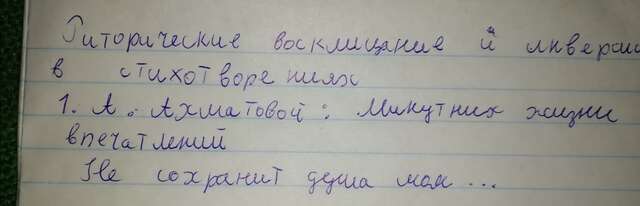 Риторические восклицание и инверси
в стихотворениях
1. А. Ахматовой: Минутних жизни
впечатлений
Не сохранит душа моя...